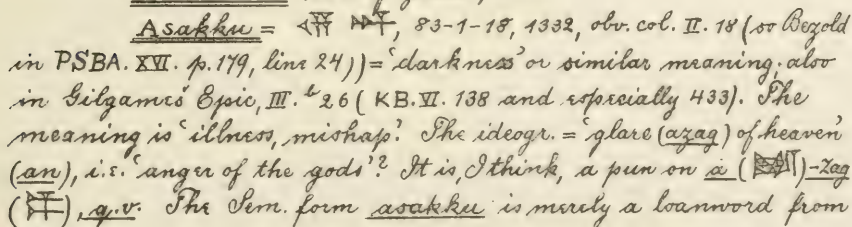 Asakku = 𒆬 𒀭, 83-1-18, 1332, obv. col. II. 18 (so Bezold
in PSBA. XVI. p. 179, line 24)) = 'darkness' or similar meaning; also
in Gilgameš Epic, III. b 26 (KB. VI. 138 and especially 433). The
meaning is 'illness, mishap'. The ideogr. = 'glare (azag) of heaven'
(an), i.e. 'anger of the gods'? It is, I think, a pun on á ()-zag
(), q.v. The Sem. form asakku is merely a loanword from